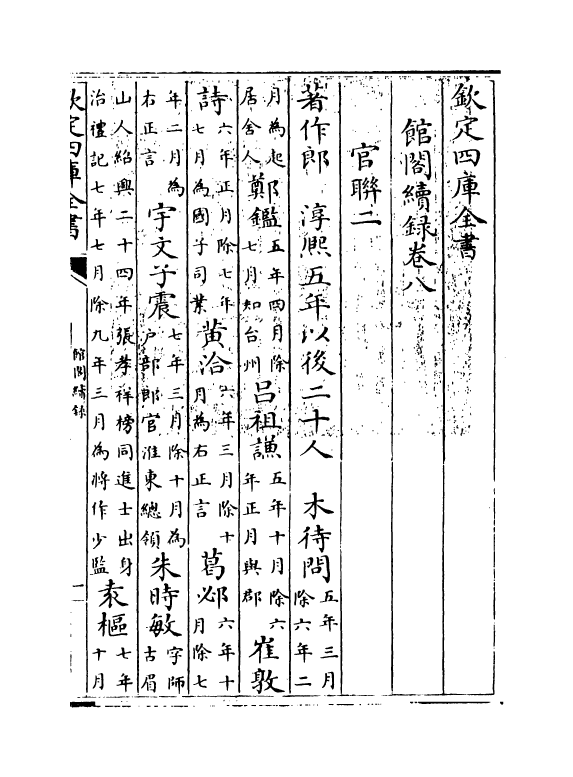 欽定四庫全書
館閣續録卷八
官聯二
著作郎 淳熙五年以後二十人 木待問 五年三月除六年二
月為起居舍人 鄭鑑 五年四月除七月知台州 吕祖謙 五年十月除六年正月與郡 崔敦
詩 六年正月除七年七月為國子司業 黄洽 六年三月除十月為右正言 葛邲 六年十月除七
年二月為右正言 宇文子震 七年三月除十月為户部郎官淮東總領 朱時敏 字師古眉
山人紹興二十四年張孝祥榜同進士出身治禮記七年七月除九年三月為將作少監 袁樞 七年十月
欽定四庫全書
館閣續録